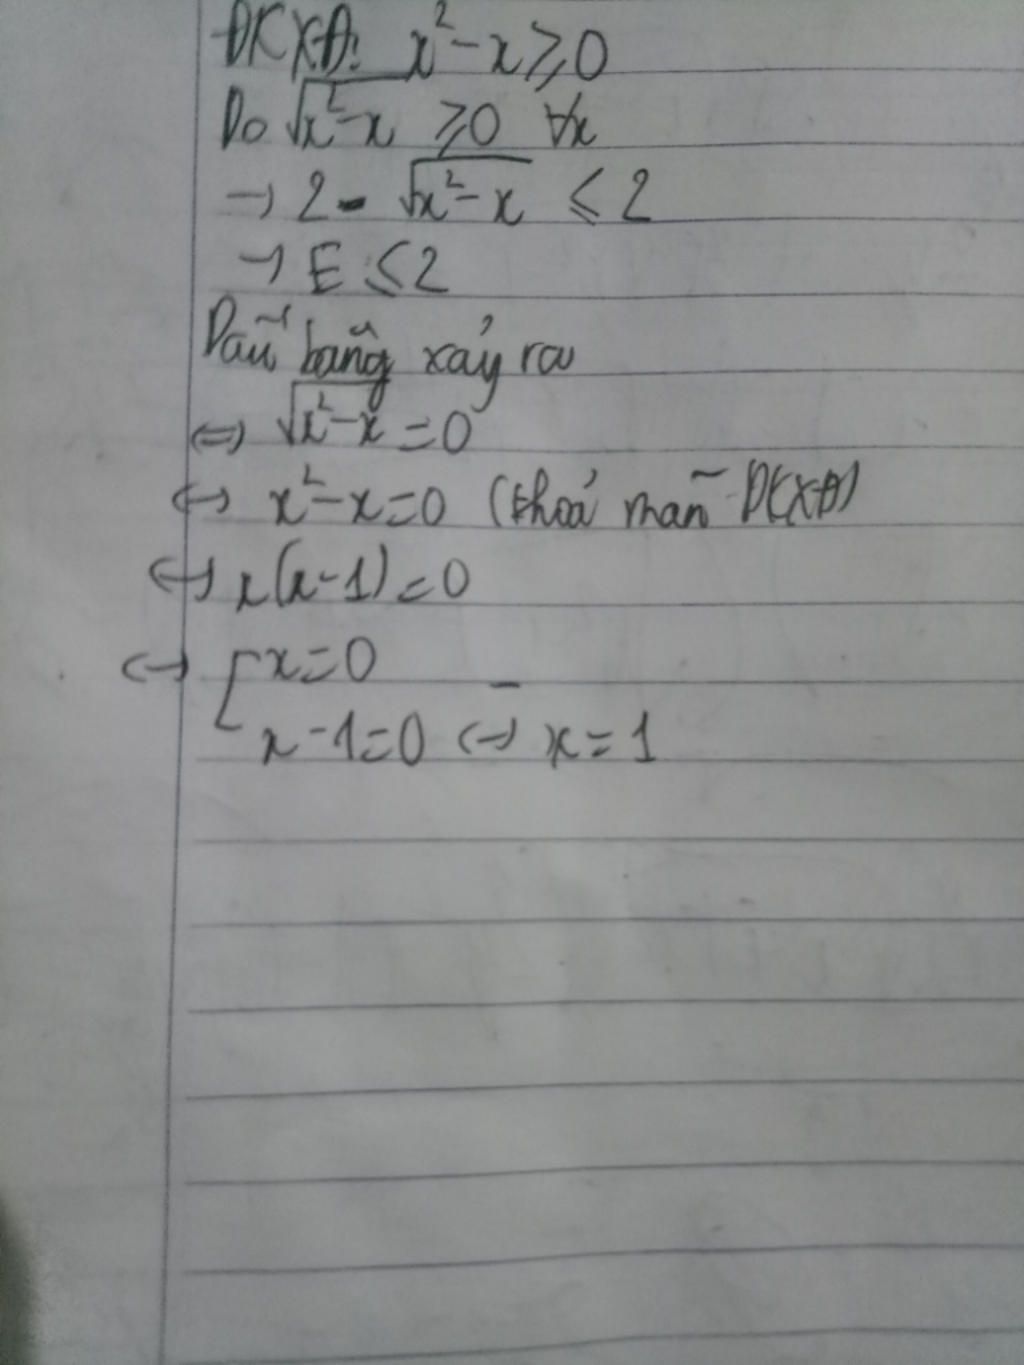 ĐKXĐ: x² - x ⩾ 0
Do √(x² - x) ⩾ 0 ∀x
→ 2 - √(x² - x) ⩽ 2
→ E ⩽ 2
Dấu bằng xảy ra
⇔ √(x² - x) = 0
↔ x² - x = 0 (thoả mãn ĐKXĐ)
↔ x(x - 1) = 0
↔ [ x = 0
x - 1 = 0 ↔ x = 1